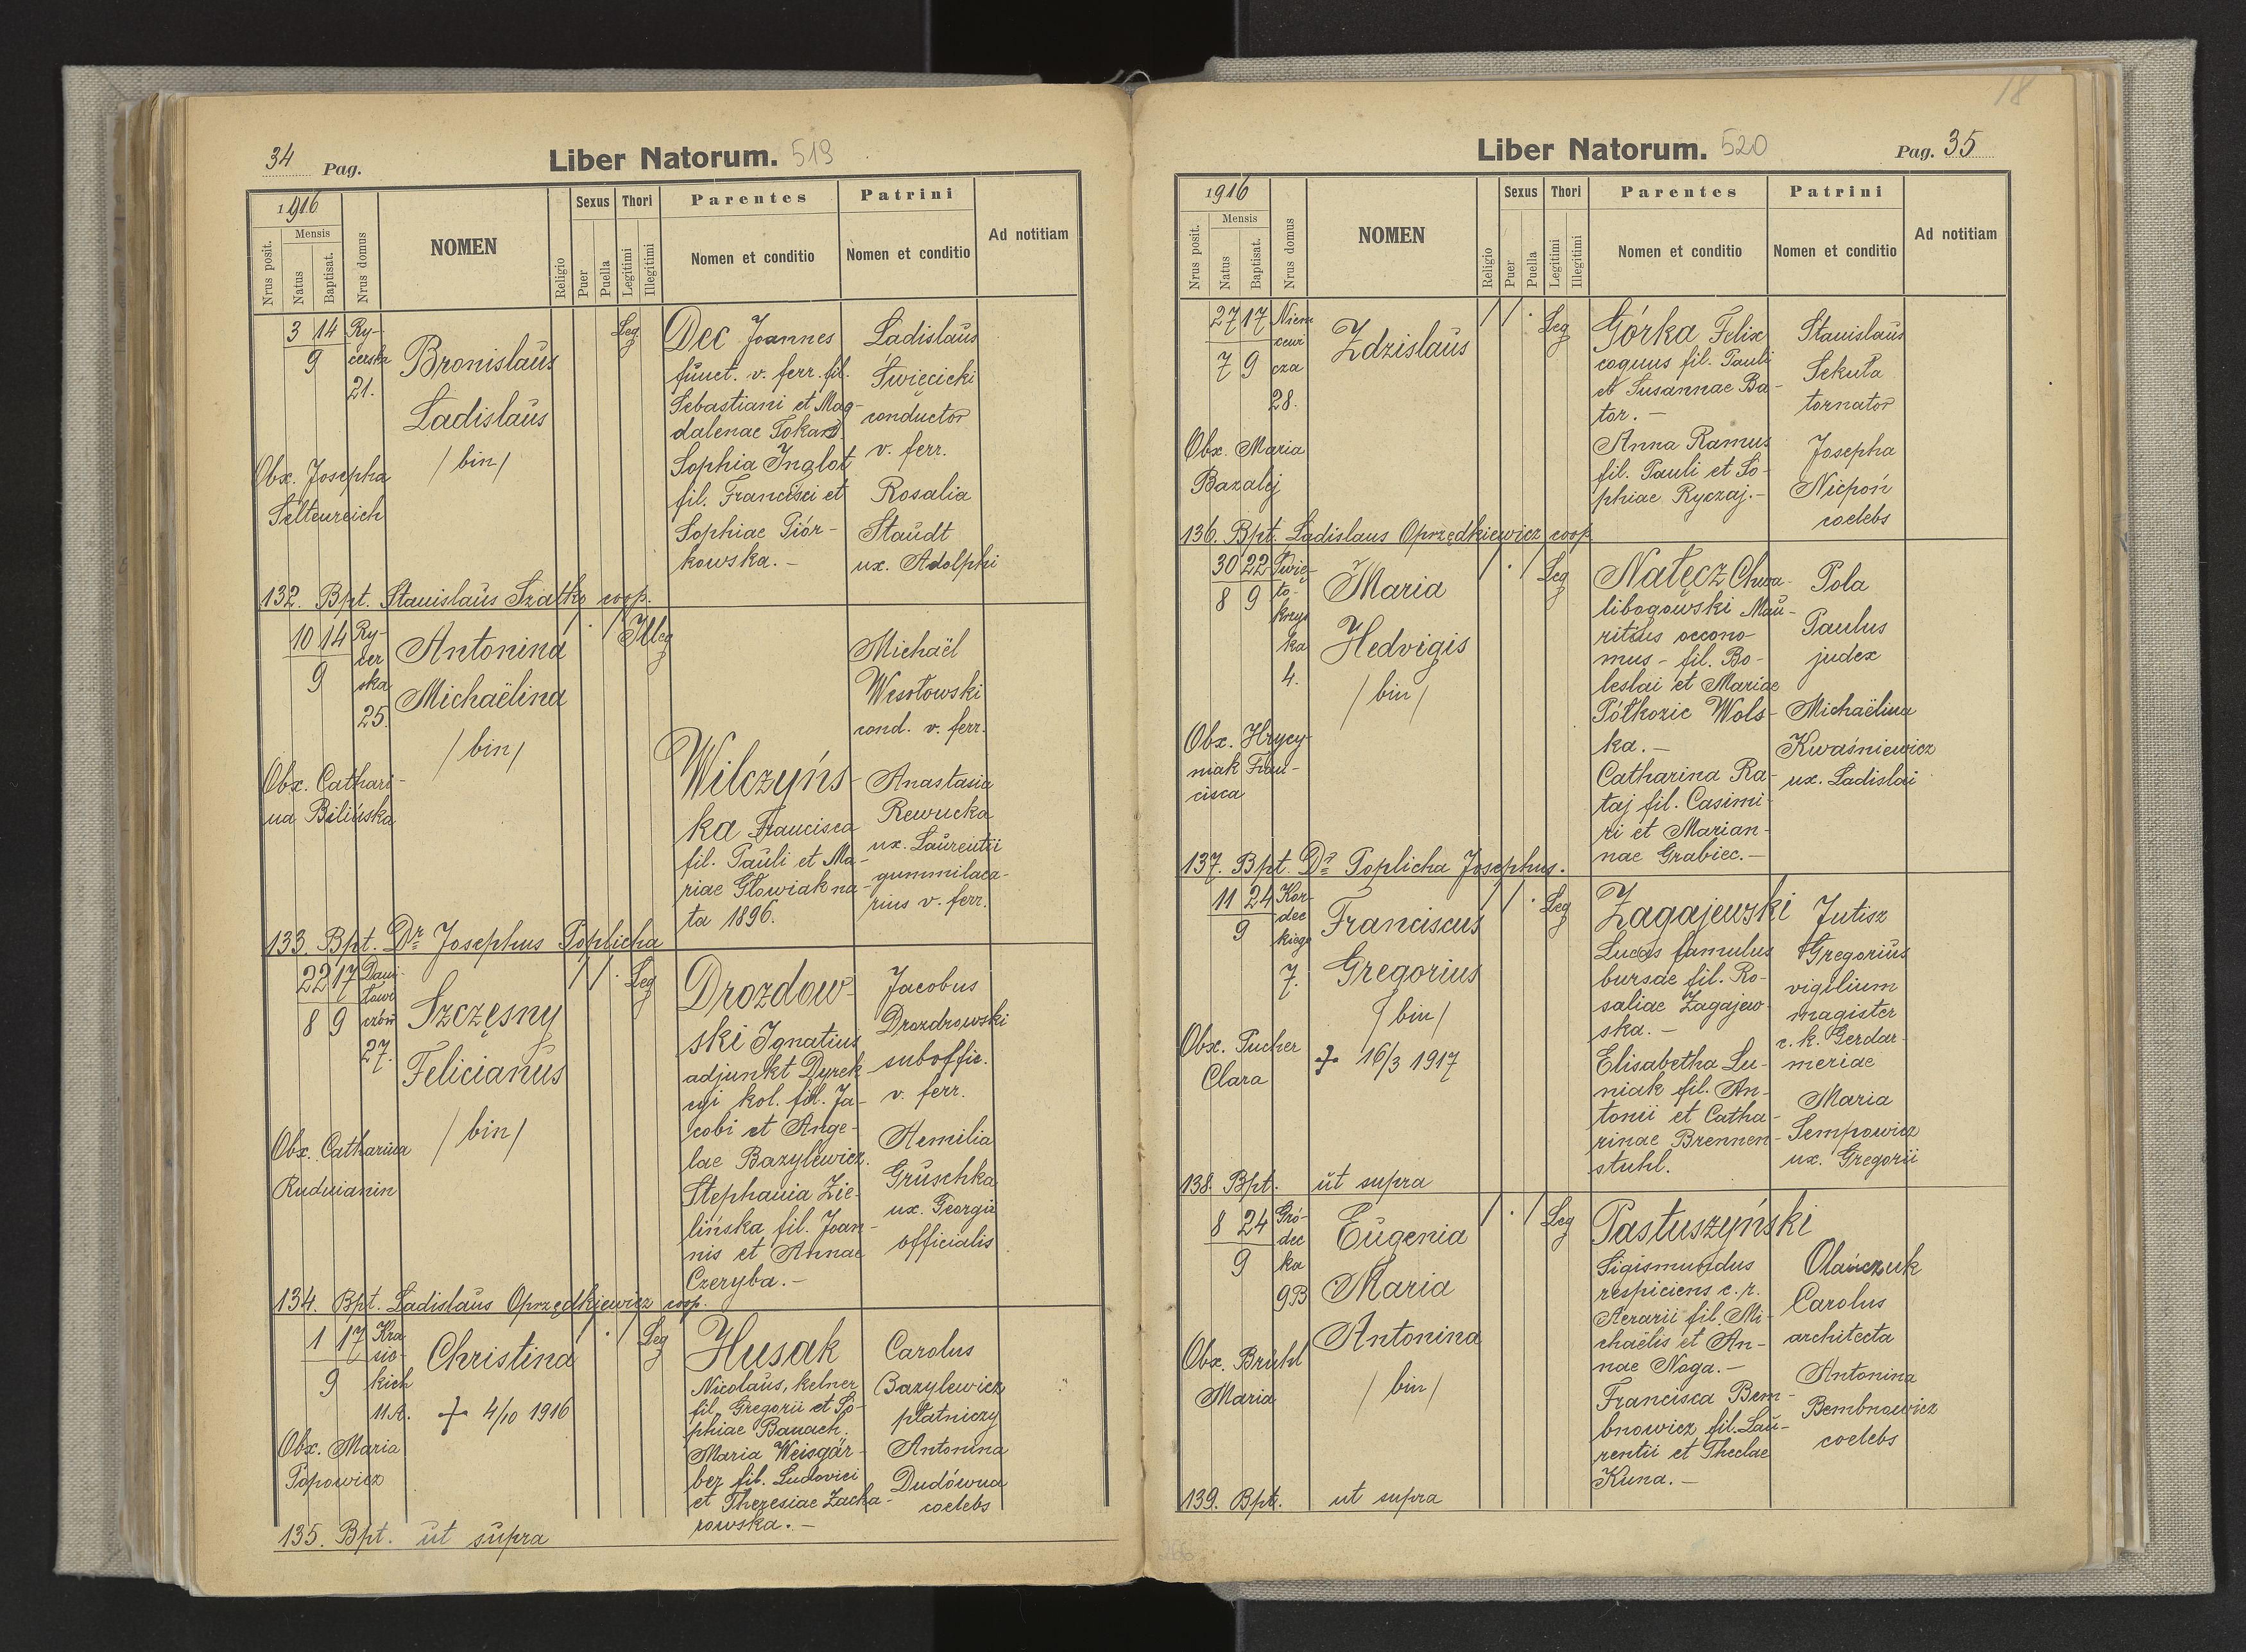 34 Pag.
Liber Natorum. 519
1916
Nrus posit.
Mensis
Natus
Baptisat.
Nrus domus
NOMEN
Religio
Sexus
Puer
Puella
Thori
Legitimi
Illegitimi
Parentes
Nomen et conditio
Patrini
Nomen et conditio
Ad notitiam
3 14
9
Ry-
cerska
21.
Bronislaus
Ladislaus
/bin/
Obx. Josepha
Seltenreich
Leg
Dec Joannes
funct. v. ferr. fil.
Sebastiani et Mag-
dalenae Tokarz
Sophia Inglot
fil. Francisci et
Sophiae Piór-
kowska. -
Ladislaus
Święcicki
conductor
v. ferr.
Rosalia
Staudt
ux. Adolphi
132. Bpt. Stanislaus Szatko coop.
10 14
9
Ry-
cer
ska
25.
Antonina
Michaëlina
/bin/
Obx. Cathari-
na Bilińska
Illeg
Wilczyńs-
ka Francisca
fil. Pauli et Ma-
riae Głowiak na-
ta 1896.
Michaël
Wesołowski
cond. v. ferr.
Anastasia
Rewucka
ux. Laurentii
gummilaca-
rius v. ferr.
133. Bpt. Dr Josephus Poplicha
22 17
8 9
Dani-
łowi
czów
27.
Szczęsny
Felicianus
/bin/
Obx. Catharina
Rudnianin
/ / · Leg
Drozdow-
ski Ignatius
adjunkt Dyrek-
cyi kol. fil. Ja-
cobi et Ange-
lae Bazylewicz.
Stephania Zie-
lińska fil. Joan-
nis et Annae
Czeryba. -
Jacobus
Drozdrowski
suboffic.
v. ferr.
Aemilia
Gruschka
ux. Georgii
officialis
134. Bpt. Ladislaus Oprzędkjewicz coop.
1 17
9
Kra
sic-
kich
11A.
Christina
+ 4/10 1916
Obx. Maria
Popowicz
/ · / Leg
Husak
Nicolaus, kelner
fil. Gregorii et So-
phiae Banach.
Maria Weisgär-
ber fil. Ludovici
et Theresiae Zacha-
rowska. -
Carolus
Bazylewicz
płatniczy
Antonina
Dudówna
coelebs
135. Bpt. ut supra
18
Liber Natorum. 520
Pag. 35
1916
Nrus posit.
Mensis
Natus
Baptisat.
Nrus domus
NOMEN
Religio
Sexus
Puer
Puella
Thori
Legitimi
Illegitimi
Parentes
Nomen et conditio
Patrini
Nomen et conditio
Ad notitiam
27 17
7 9
Niem
cewi
cza
28.
Zdzislaus
Obx. Maria
Bazalij
/ / · Leg
Górka Felix
coquus fil. Pauli
et Susannae Ba-
tor. -
Anna Ramus
fil. Pauli et So-
phiae Ryczaj. -
Stanislaus
Sekuła
tornator
Josepha
Nicpoń
coelebs
136. Bpt. Ladislaus Oprzędkiewicz coop
30 22
8 9
Świę-
to-
krzys
ka
4.
Maria
Hedvigis
/bin/
Obx. Hrycy-
niak Fran-
cisca
/ · / Leg
Nałęcz Chwa-
libogowski Mau-
ritius oecono-
mus - fil. Bo-
leslai et Mariae
Półkozic Wols-
ka. -
Catharina Ra-
taj fil. Casimi-
ri et Marian-
nae Grabiec. -
Pola
Paulus
judex
Michaëlina
Kwaśniewicz
ux. Ladislai
137. Bpt. Dr Poplicha Josephus.
11 24
9
Kor-
dec
kiego
7.
Franciscus
Gregorius
/bin/
+ 16/3 1917
Obx. Pucher
Clara
/ / · Leg
Zagajewski
Lucas famulus
bursae fil. Ro-
saliae Zagajew-
ska. -
Elisabetha Lu-
niak fil. An-
tonii et Catha-
rinae Brennen-
stuhl.
Jutisz
Gregorius
vigilium
magister
c. k. Gerdar-
meriae
Maria
Sempowicz
ux. Gregorii
138. Bpt. ut supra
8 24
9
Gró-
dec
ka
9B
Eugenia
Maria
Antonina
/bin/
Obx. Brühl
Maria
/ · / Leg
Pastuszyński
Sigismundus
respiciens c. r.
Aerarii fil. Mi-
chaëlis et An-
nae Noga. -
Francisca Bem-
bnowicz fil. Lau-
rentii et Theclae
Kuna. -
Olańczuk
Carolus
architecta
Antonina
Bembnowicz
coelebs
139. Bpt. ut supra
266